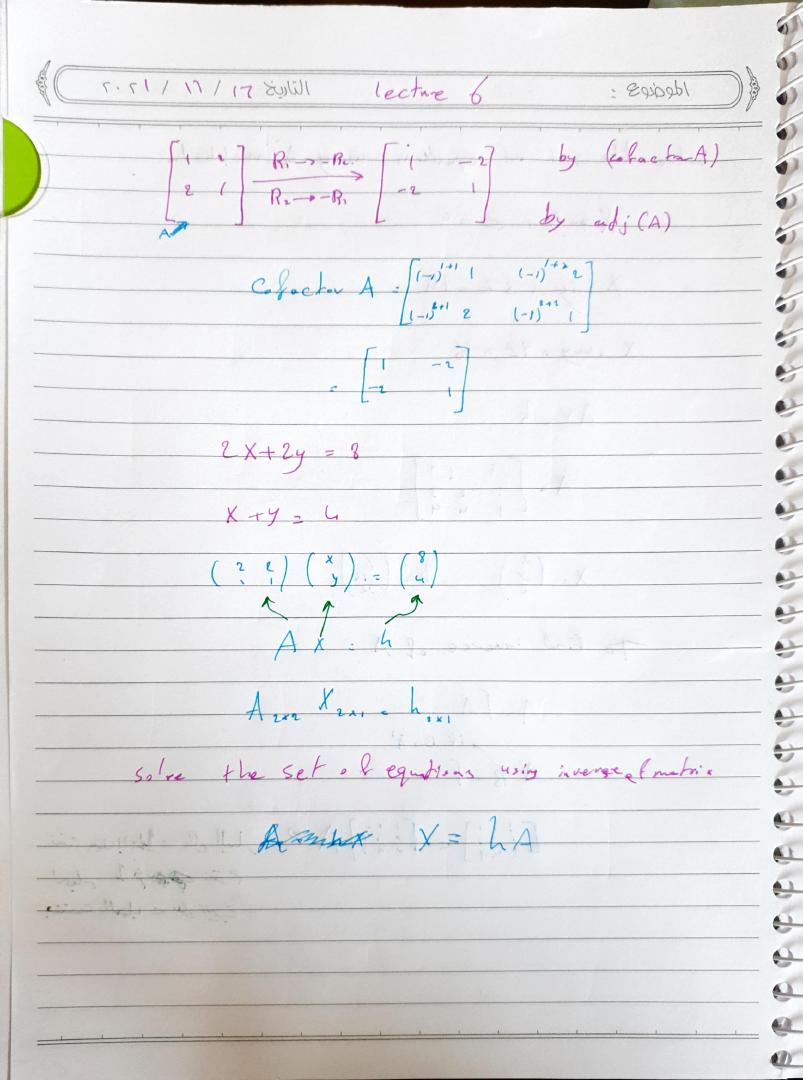 الموضوع : lecture 6 التاريخ ١٦ / ١٦ / ٢٠٢١
[1 2 2 1] R₁ → -R₂ R₂ → -R₁ [1 -2 -2 1] by (cofactor A)
A by adj (A)
Cofactor A = [(-1)¹⁺¹ 1 (-1)¹⁺² 2
(-1)²⁺¹ 2 (-1)²⁺² 1]
= [1 -2
-2 1]
2x+2y = 8
x+y = 4
(2 2 1 1) (x y) = (8 4)
A x = h
A₂ₓ₂ X₂ₓ₁ = h₂ₓ₁
solve the set of equations using inverse of matrix
X = hA